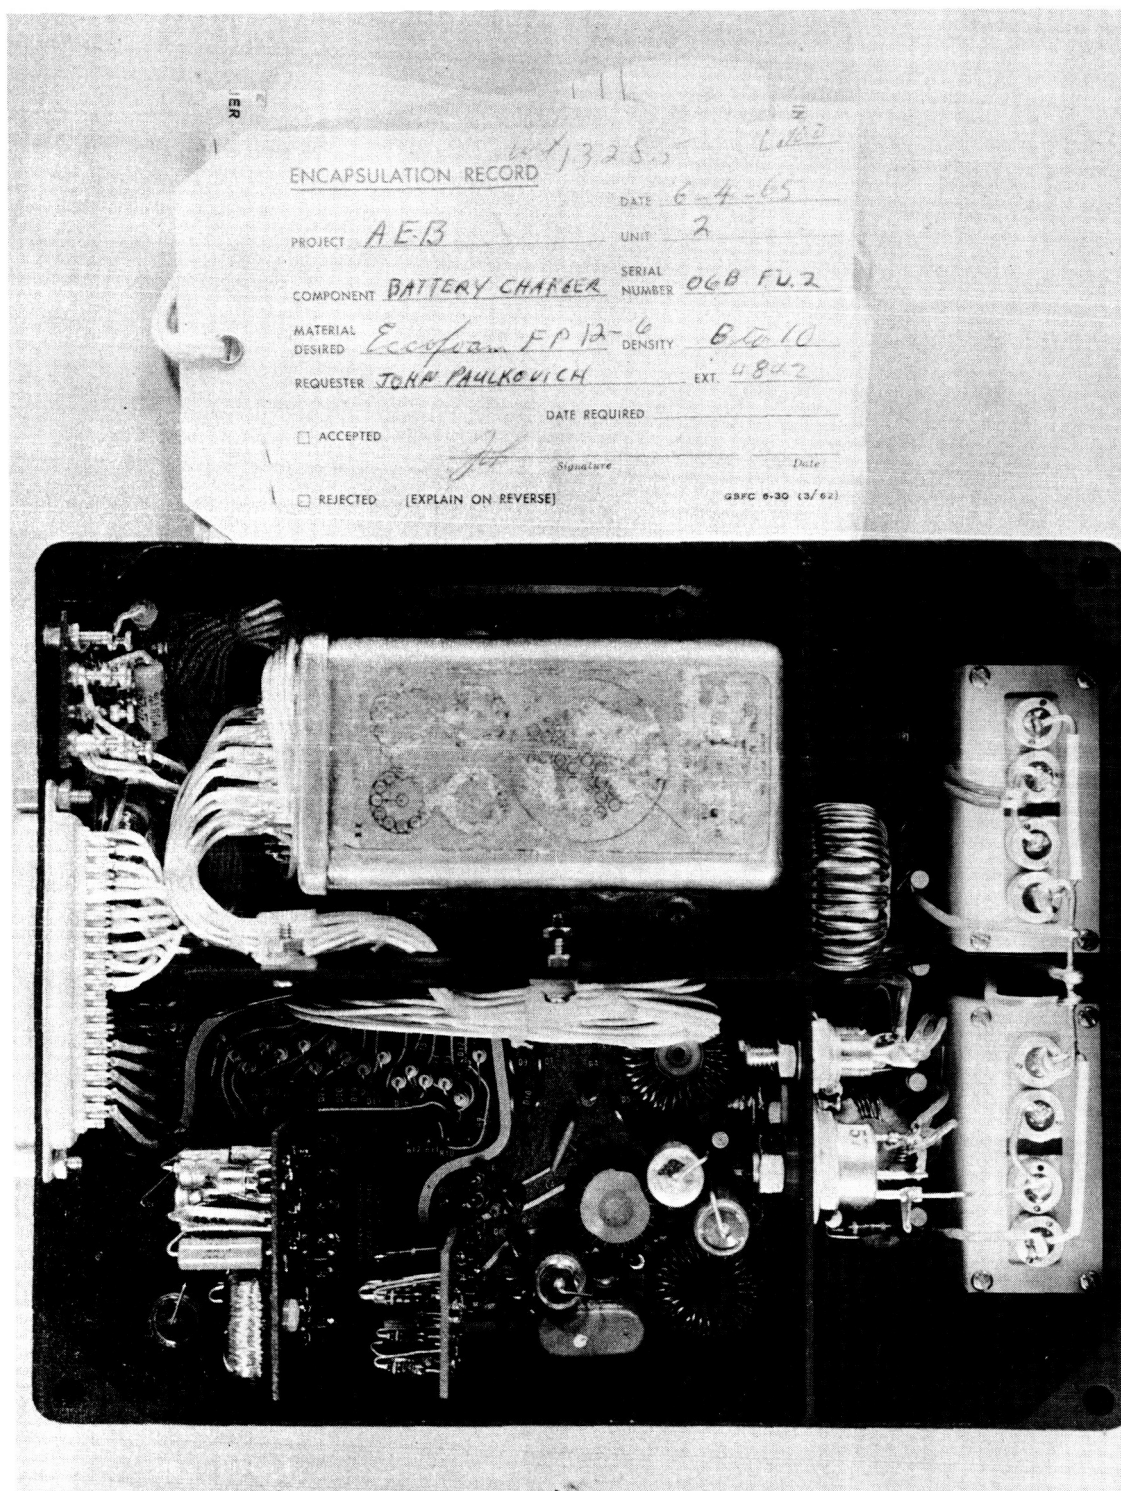 IER
wt 1328.5
ENCAPSULATION RECORD
DATE 6-4-65
PROJECT AE-B UNIT 2
COMPONENT BATTERY CHARGER SERIAL NUMBER 06B FU.2
MATERIAL DESIRED Eccofoam FP 12-6 DENSITY 8 to 10
REQUESTER JOHN PAULKOVICH EXT. 4842
DATE REQUIRED
☐ ACCEPTED
Signature Date
☐ REJECTED [EXPLAIN ON REVERSE] GSFC 6-30 (3/62)